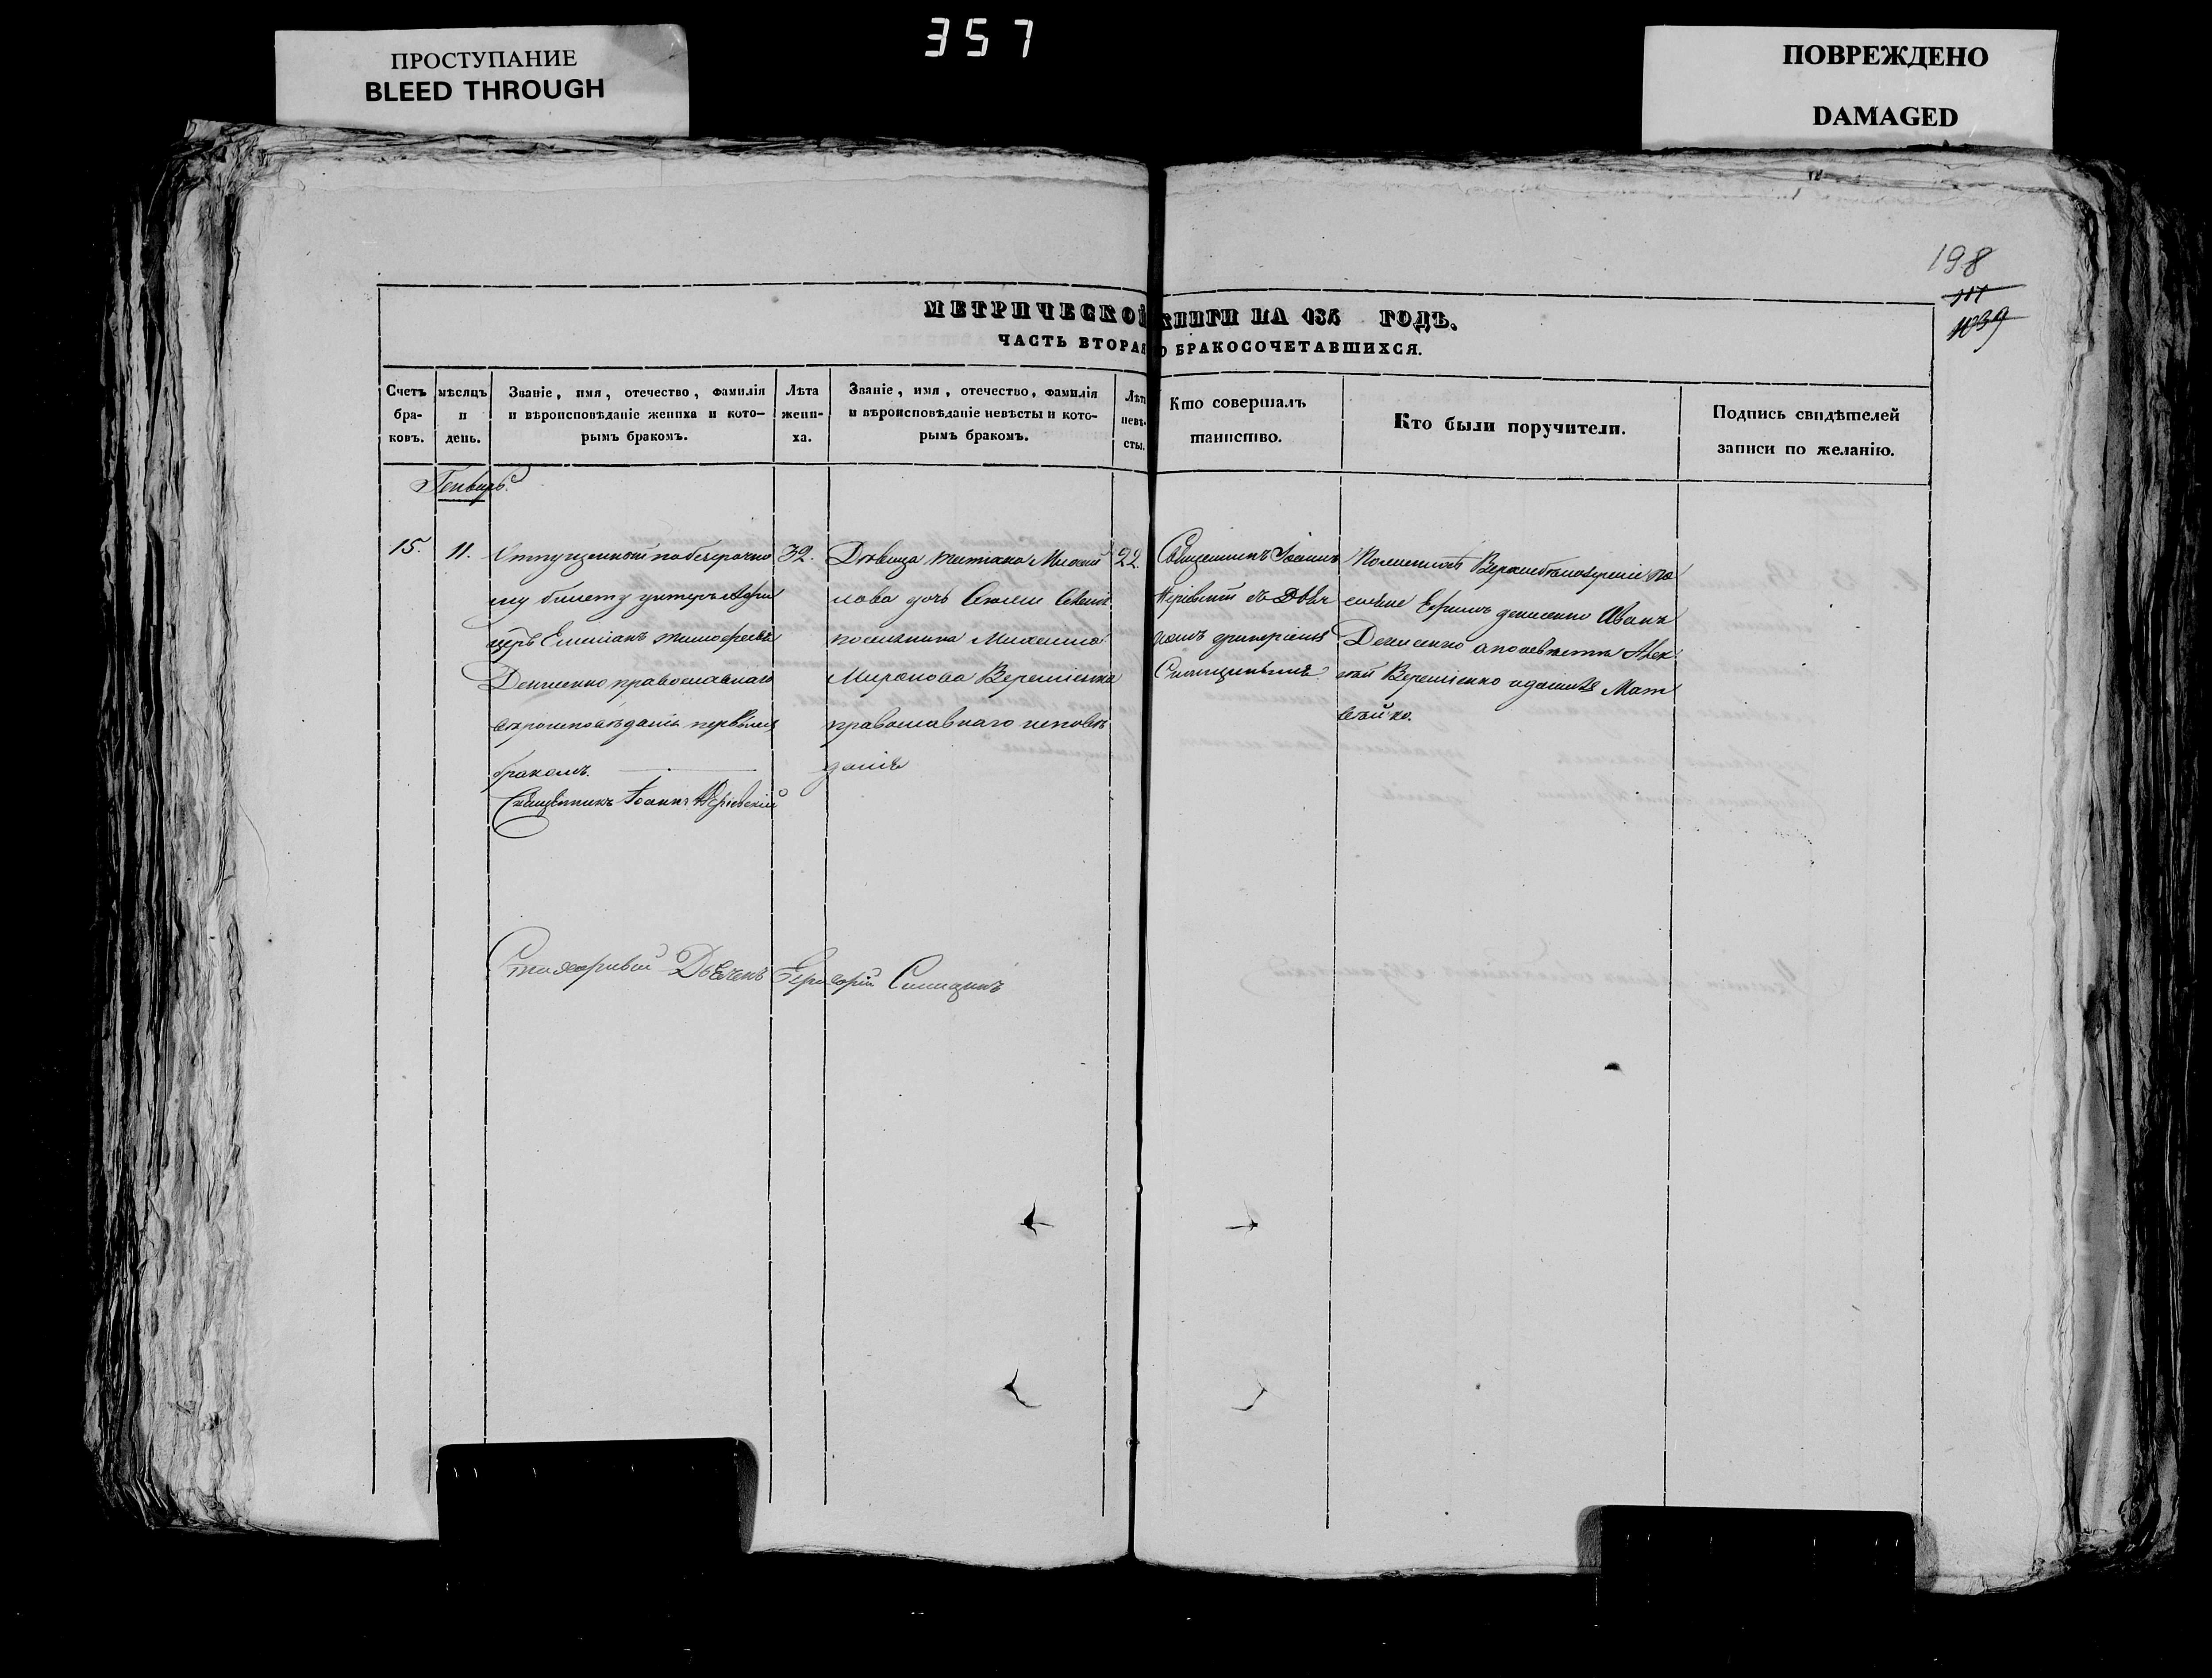 357
ПРОСТУПАНИЕ
BLEED THROUGH
ПОВРЕЖДЕНО
DAMAGED
198
1039
МЕТРИЧЕСКОЙ КНИГИ НА 185 ГОДЪ.
ЧАСТЬ ВТОРАЯ О БРАКОСОЧЕТАВШИХСЯ.
Счетъ
бра-
ковъ.
мѣсяцъ
и
день.
Званіе, имя, отечество, фамилія
и вѣроисповѣданіе жениха и кото-
рымъ бракомъ.
Лѣта
жени-
ха.
Званіе, имя, отечество, фамилія
и вѣроисповѣданіе невѣсты и кото-
рымъ бракомъ.
Лѣта
невѣ-
сты.
Кто совершалъ
таинство.
Кто были поручители.
Подпись свидѣтелей
записи по желанію.
Генварь.
15.
11.
Отпущенный по безсрочно
му билету унтеръ Афи
церъ Емиліанъ Тимофеевъ
Денисенко православнаго
вѣроисповѣданія первымъ
бракомъ.
Священникъ Іоаннъ
32.
Дѣвица Татіана Михаи
лова дочь
поселянина Михаила
Миронова
православнаго исповѣ
данія
22.
Священникъ Іоаннъ
съ Дьяч
комъ Григоріемъ
Синицынымъ
по
селяне Ефимъ Денисенко Иванъ
Денисенко а по невѣстѣ Алек
сѣй и Мат
вѣйко.
Дьячекъ Григорій Синицынъ